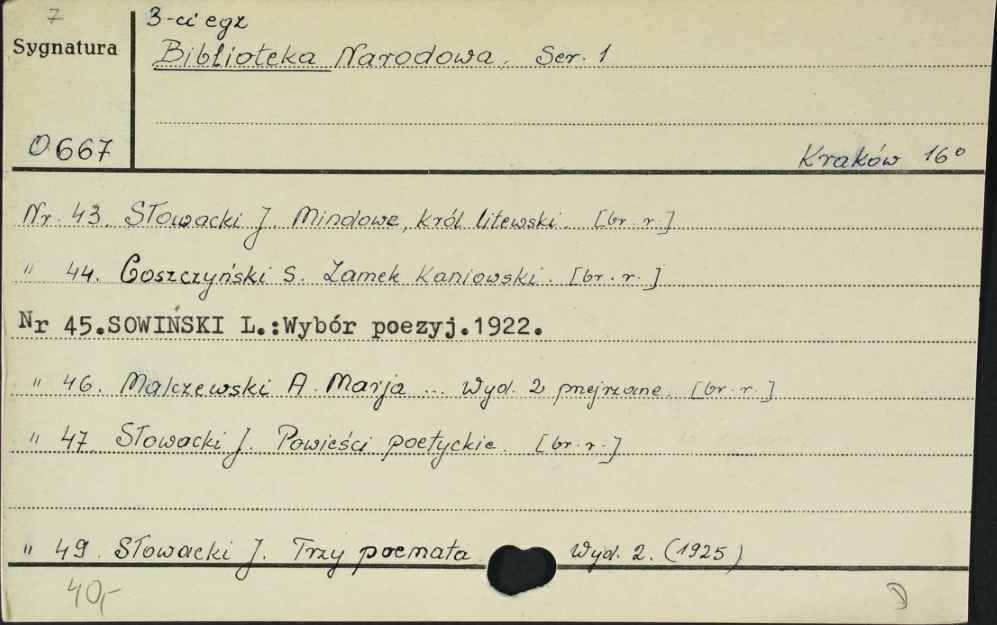 7
3-ci egz
Sygnatura
Biblioteka Narodowa. Ser. 1
O667
Kraków 16°
Nr. 43. Słowacki J. Mindowe, król litewski. [br. r.]
" 44. Goszczyński S. Zamek Kaniowski. [br. r.]
Nr 45.SOWIŃSKI L.:Wybór poezyj.1922.
" 46. Malczewski A. Marja ... Wyd. 2 przejrzane. [br. r.]
" 47. Słowacki J. Powieści poetyckie. [br. r.]
" 49. Słowacki J. Trzy poemata Wyd. 2. (1925)
40,-